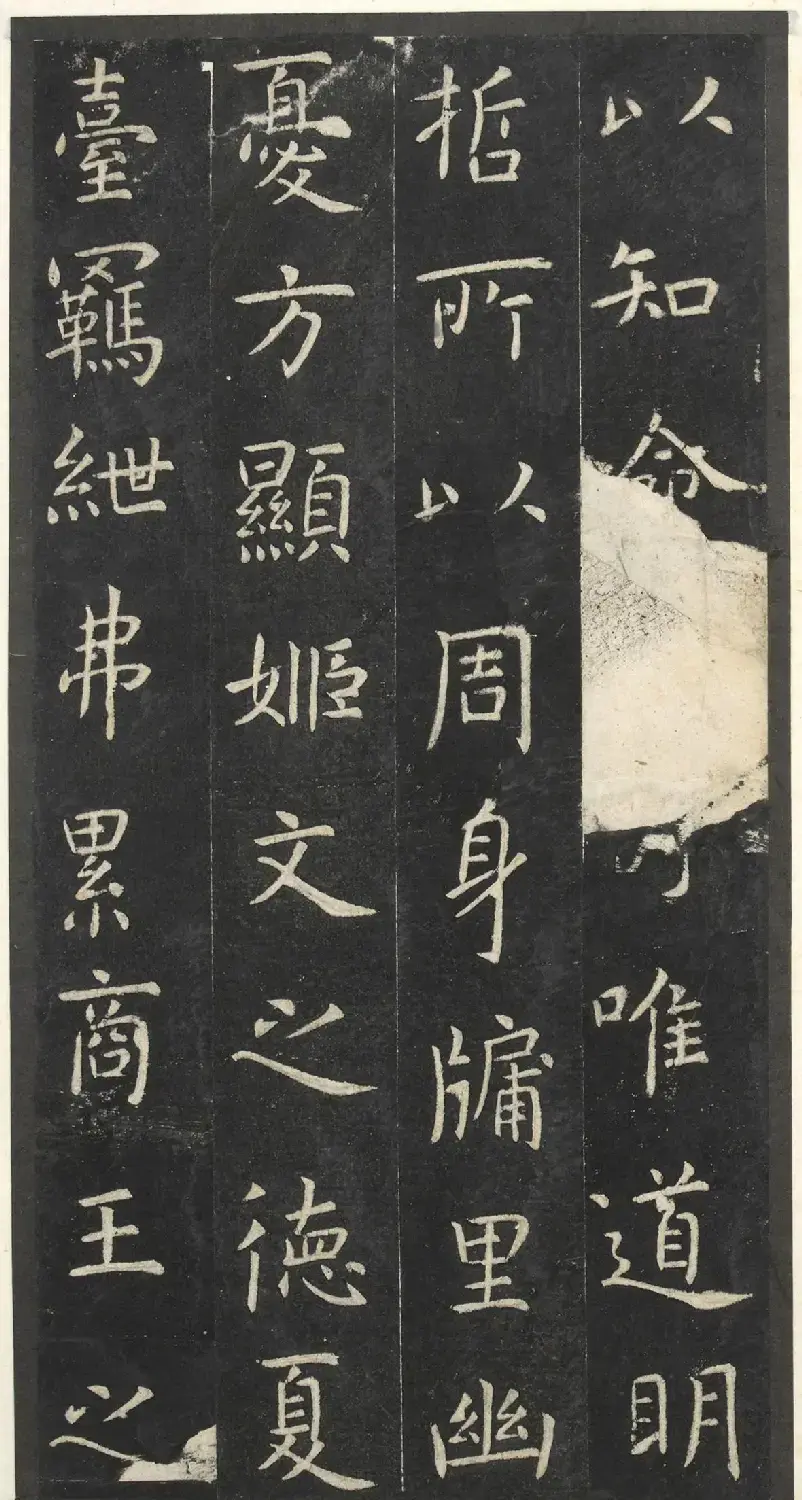 以知命唯道眀
哲所以周身牖里幽
憂方顯姬文之徳夏
臺羈紲弗累商王之